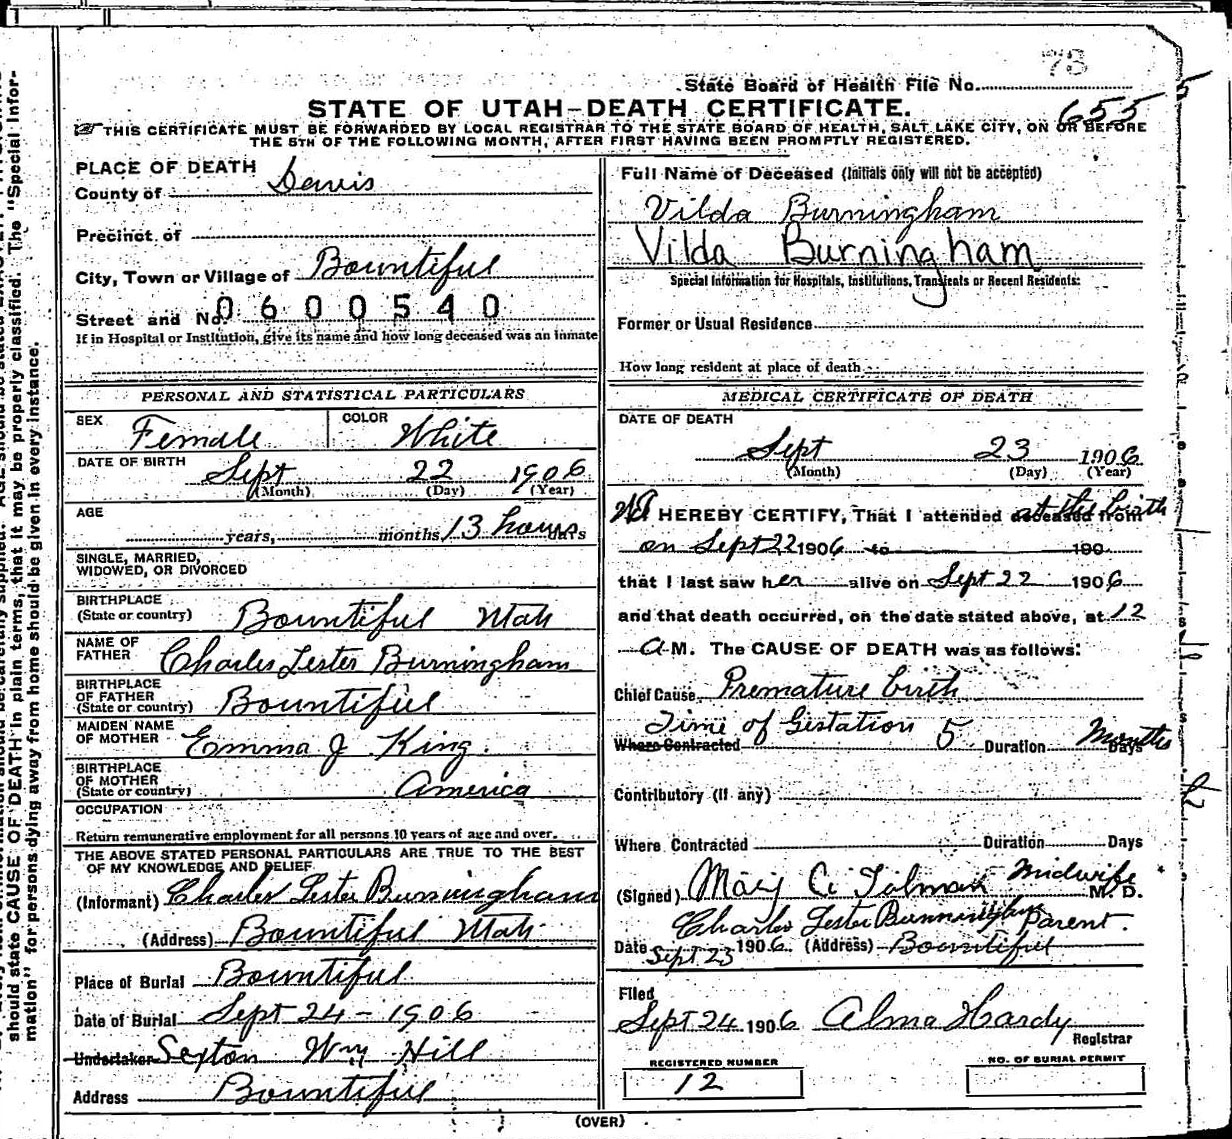 73
State Board of Health File No.
655
STATE OF UTAH—DEATH CERTIFICATE.
THIS CERTIFICATE MUST BE FORWARDED BY LOCAL REGISTRAR TO THE STATE BOARD OF HEALTH, SALT LAKE CITY, ON OR BEFORE
THE 5TH OF THE FOLLOWING MONTH, AFTER FIRST HAVING BEEN PROMPTLY REGISTERED.
PLACE OF DEATH
County of Davis
Precinct of
City, Town or Village of Bountiful
Street and No. 0600540
If in Hospital or Institution, give its name and how long deceased was an inmate
PERSONAL AND STATISTICAL PARTICULARS
SEX Female COLOR White
DATE OF BIRTH Sept 22 1906
(Month) (Day) (Year)
AGE years, months 13 hours days
SINGLE, MARRIED,
WIDOWED, OR DIVORCED
BIRTHPLACE
(State or country) Bountiful Utah
NAME OF
FATHER Charles Lester Burningham
BIRTHPLACE
OF FATHER
(State or country) Bountiful
MAIDEN NAME
OF MOTHER Emma J King
BIRTHPLACE
OF MOTHER
(State or country) America
OCCUPATION
Return remunerative employment for all persons 10 years of age and over.
THE ABOVE STATED PERSONAL PARTICULARS ARE TRUE TO THE BEST
OF MY KNOWLEDGE AND BELIEF
(Informant) Charles Lester Burningham
(Address) Bountiful Utah
Place of Burial Bountiful
Date of Burial Sept 24 - 1906
Undertaker Sexton Wm Hill
Address Bountiful
Full Name of Deceased (Initials only will not be accepted)
Vilda Burningham
Vilda Burningham
Special Information for Hospitals, Institutions, Transients or Recent Residents:
Former or Usual Residence
How long resident at place of death
MEDICAL CERTIFICATE OF DEATH
DATE OF DEATH
Sept 23 1906
(Month) (Day) (Year)
HEREBY CERTIFY, That I attended deceased from at the birth
on Sept 22 1906 to 190
that I last saw her alive on Sept 22 1906
and that death occurred, on the date stated above, at 12
A M. The CAUSE OF DEATH was as follows:
Chief Cause Premature birth
Time of Gestation 5 Months
Where Contracted Duration Days
Contributory (if any)
Where Contracted Duration Days
(Signed) Mary A Tolman Midwife M. D.
Charles Lester Burningham Parent.
Date Sept 23 1906 (Address) Bountiful
Filed
Sept 24 1906 Alma Hardy
Registrar
REGISTERED NUMBER
12
NO. OF BURIAL PERMIT
(OVER)
should state CAUSE OF DEATH in plain terms, that it may be properly classified. The "Special Infor-
mation" for persons dying away from home should be given in every instance.